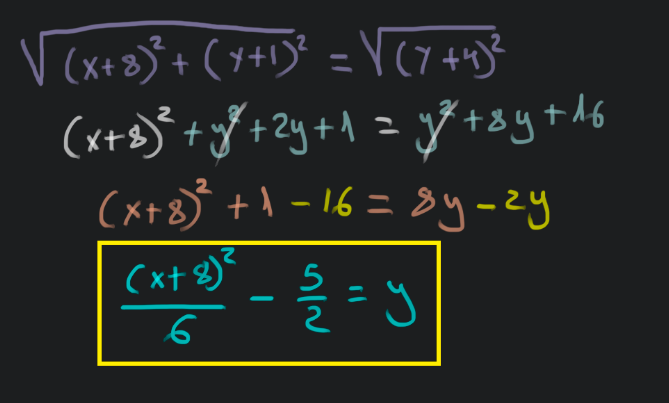 √(x+8)² + (y+1)² = √(y+4)²
(x+8)² + y² + 2y + 1 = y² + 8y + 16
(x+8)² + 1 - 16 = 8y - 2y
(x+8)²/6 - 5/2 = y